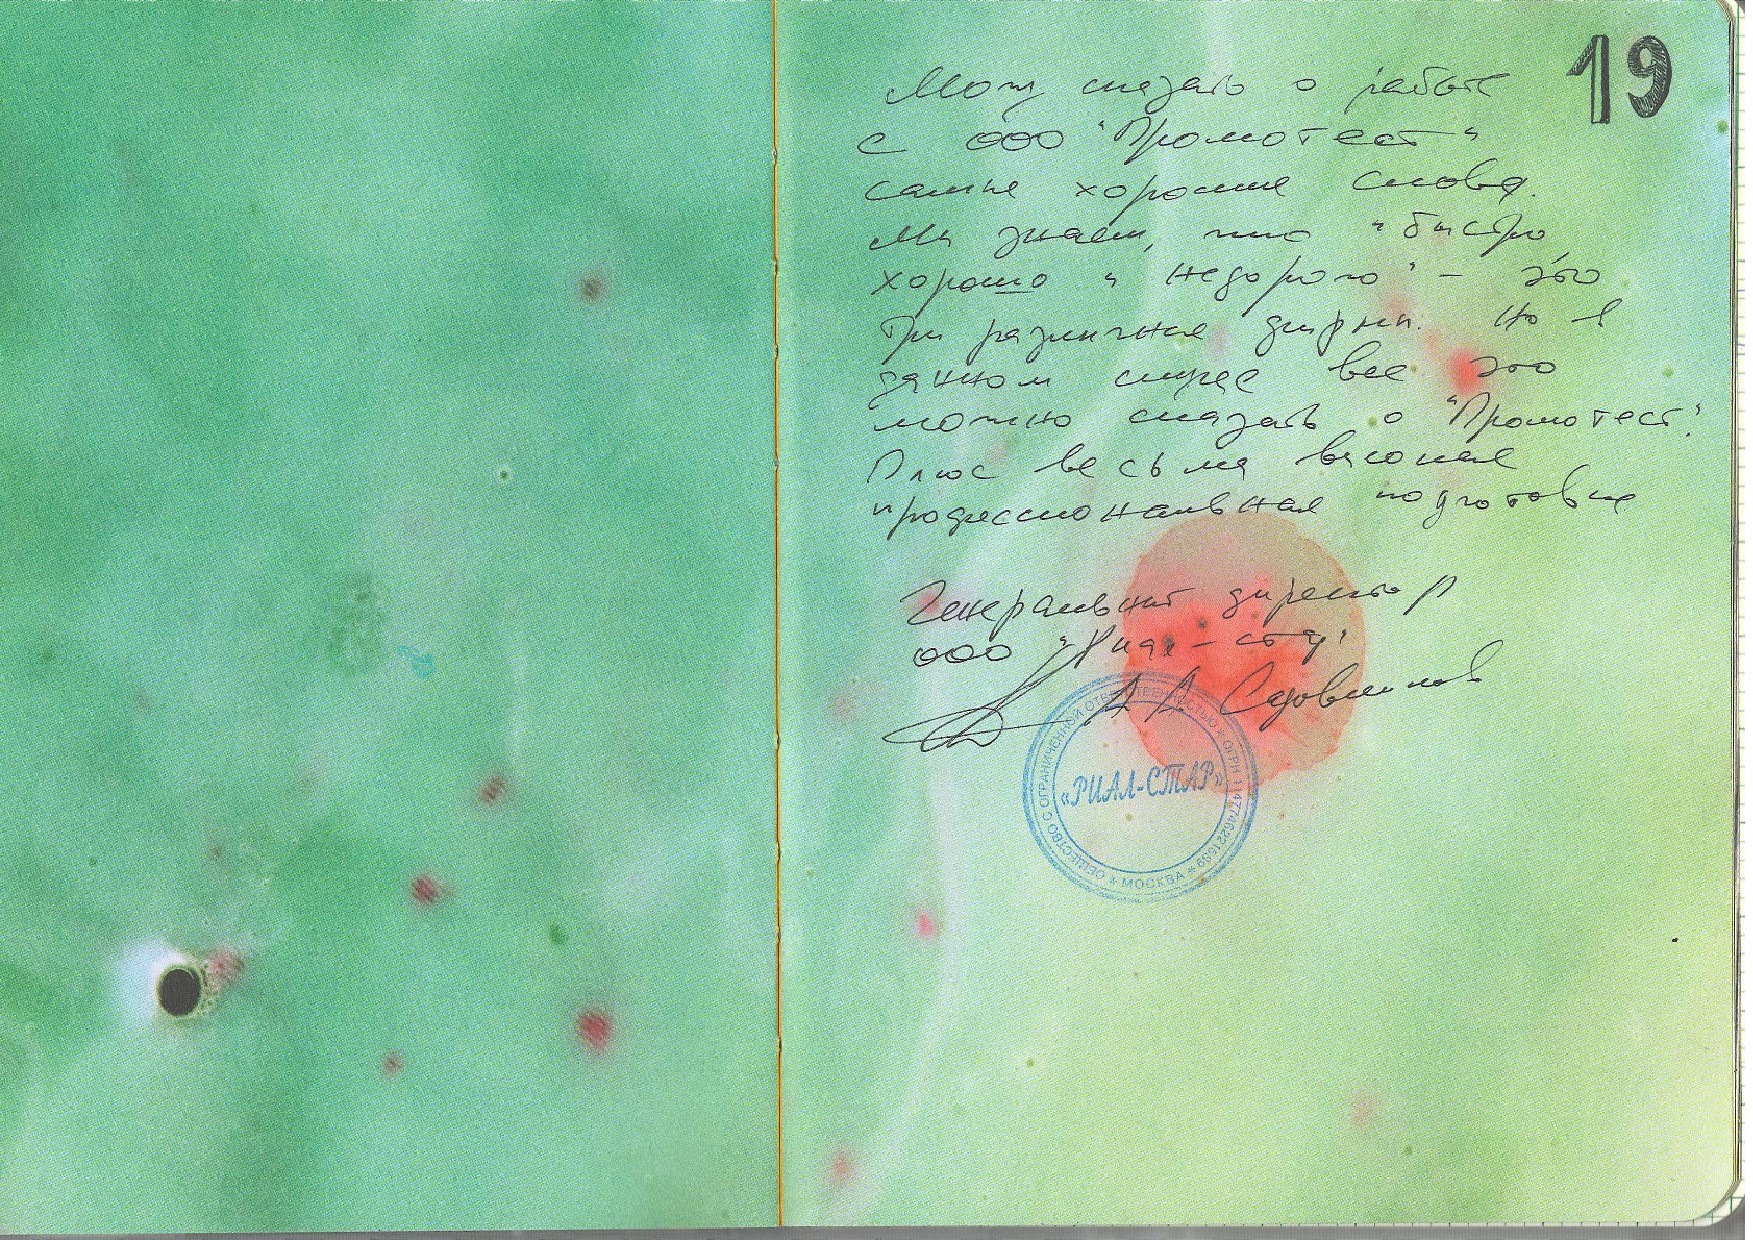 19
Могу сказать о работе
с ООО "Промотест"
самые хорошие слова.
Мы знаем, что "быстро,
хорошо и недорого" - это
три различные фирмы. Но в
данном случае все это
можно сказать о "Промотест".
Плюс весьма высокая
профессиональная подготовка
Генеральный директор
ООО "Риал-стар"
А А Садовников
«РИАЛ-СТАР»
ОБЩЕСТВО С ОГРАНИЧЕННОЙ ОТВЕТСТВЕННОСТЬЮ * ОГРН 1147746221589 * МОСКВА *